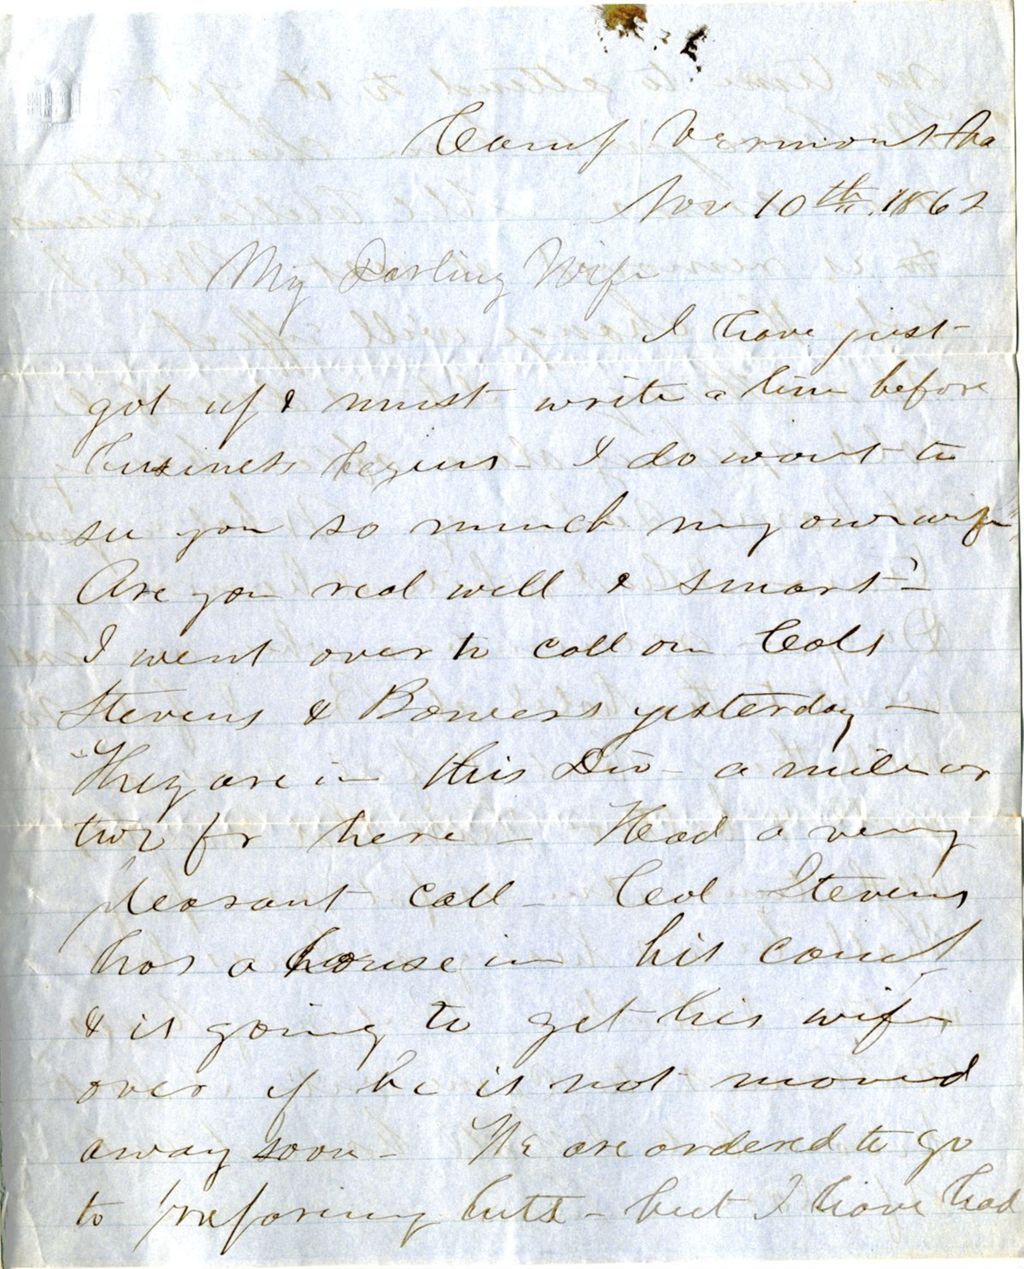 Camp Vermont Va
Nov 10th, 1862
My Darling Wife
I have just
got up & must write a line before
business begins - I do want to
see you so much my own wife,
Are you real well & smart?
I went over to call on Cols
Stevens & Bowers yesterday -
They are in this Div - a mile or
two fr here - Had a very
pleasant call - Col Stevens
has a house in his camp
& is going to get his wife
over if he is not moved
away soon - We are ordered to go
to preparing huts - but I have had